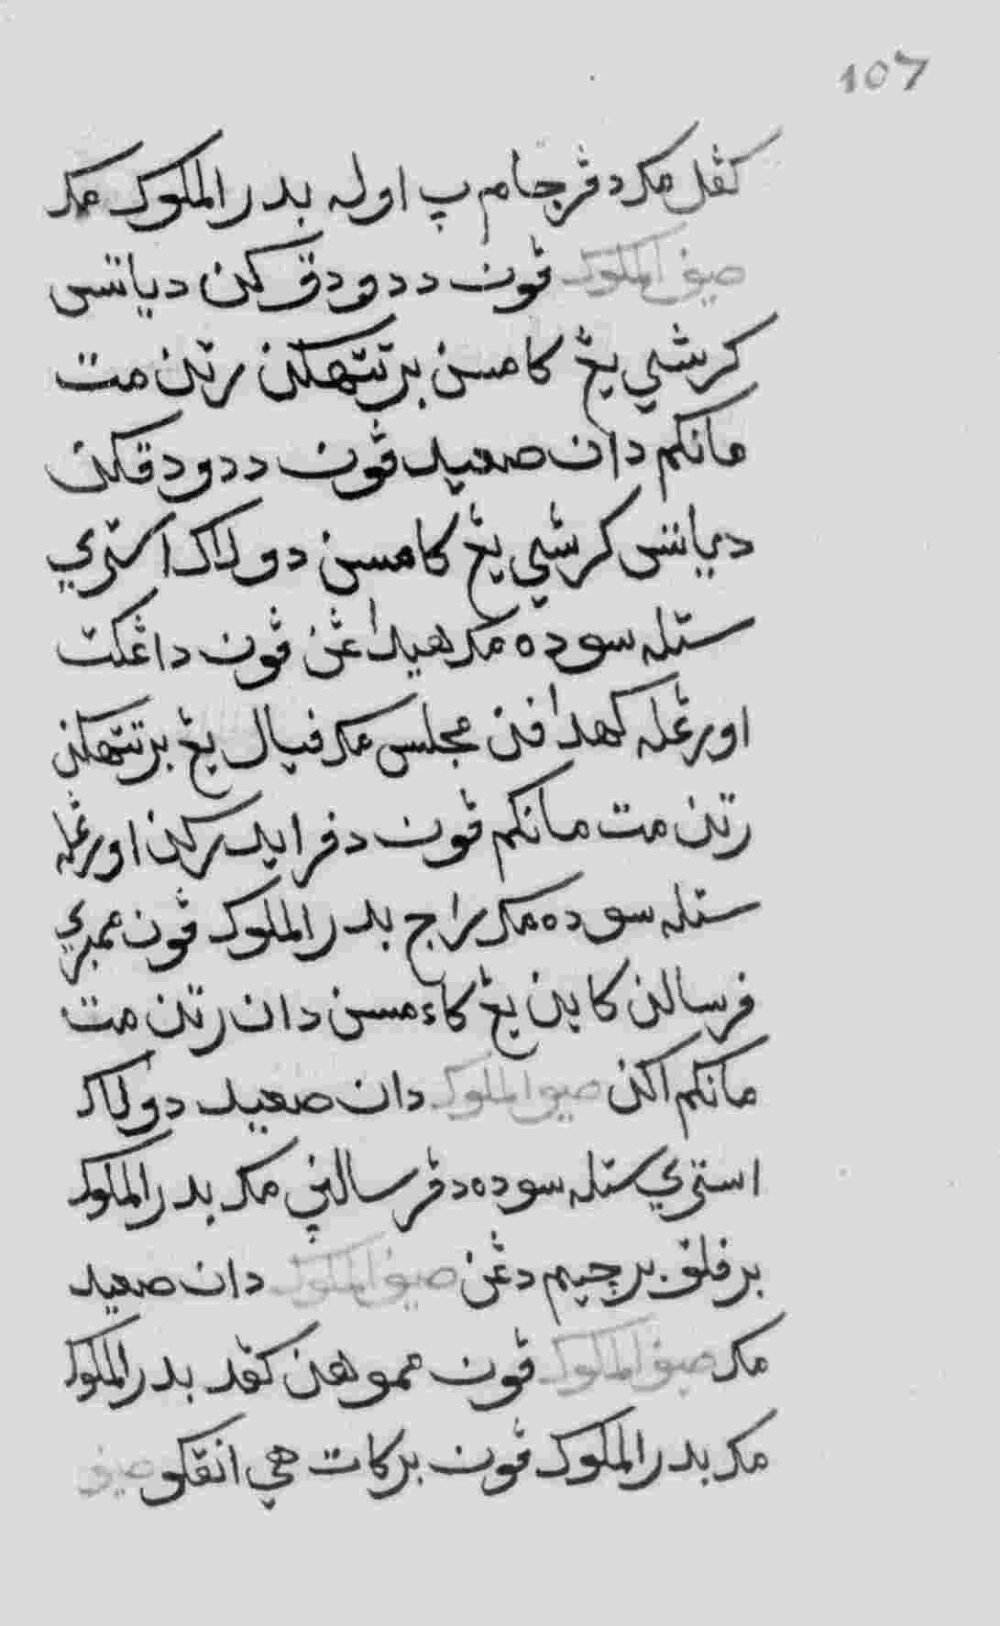 107
كڤل مك دڤرجامڽ اوله بدرالملوك مك
صيف الملوك ڤون ددودقكن دياتس
كرسي يڠ كامسن برتتهكن رتن مت
مانكم دان صعيد ڤون ددودقكن
دياتس كرسي يڠ كامسن دولاك استري
ستله سوده مك هيداڠن ڤون داڠكت
اورڠله كهدافن مجلس مك فيال يڠ برتتهكن
رتن مت مانكم ڤون دفرايدركن اورڠله
ستله سوده مك راج بدرالملوك ڤون ممبري
فرسالن كاين يڠ كاءمسن دان رتن مت
مانكم اكن صيف الملوك دان صعيد دولاك
استري ستله سوده دڤرسالڽي مك بدرالملوك
برفلق برچيم دڠن صيف الملوك دان صعيد
مك صيف الملوك ڤون مموهن كڤد بدرالملوك
مك بدرالملوك ڤون بركات هي انقكو صيف